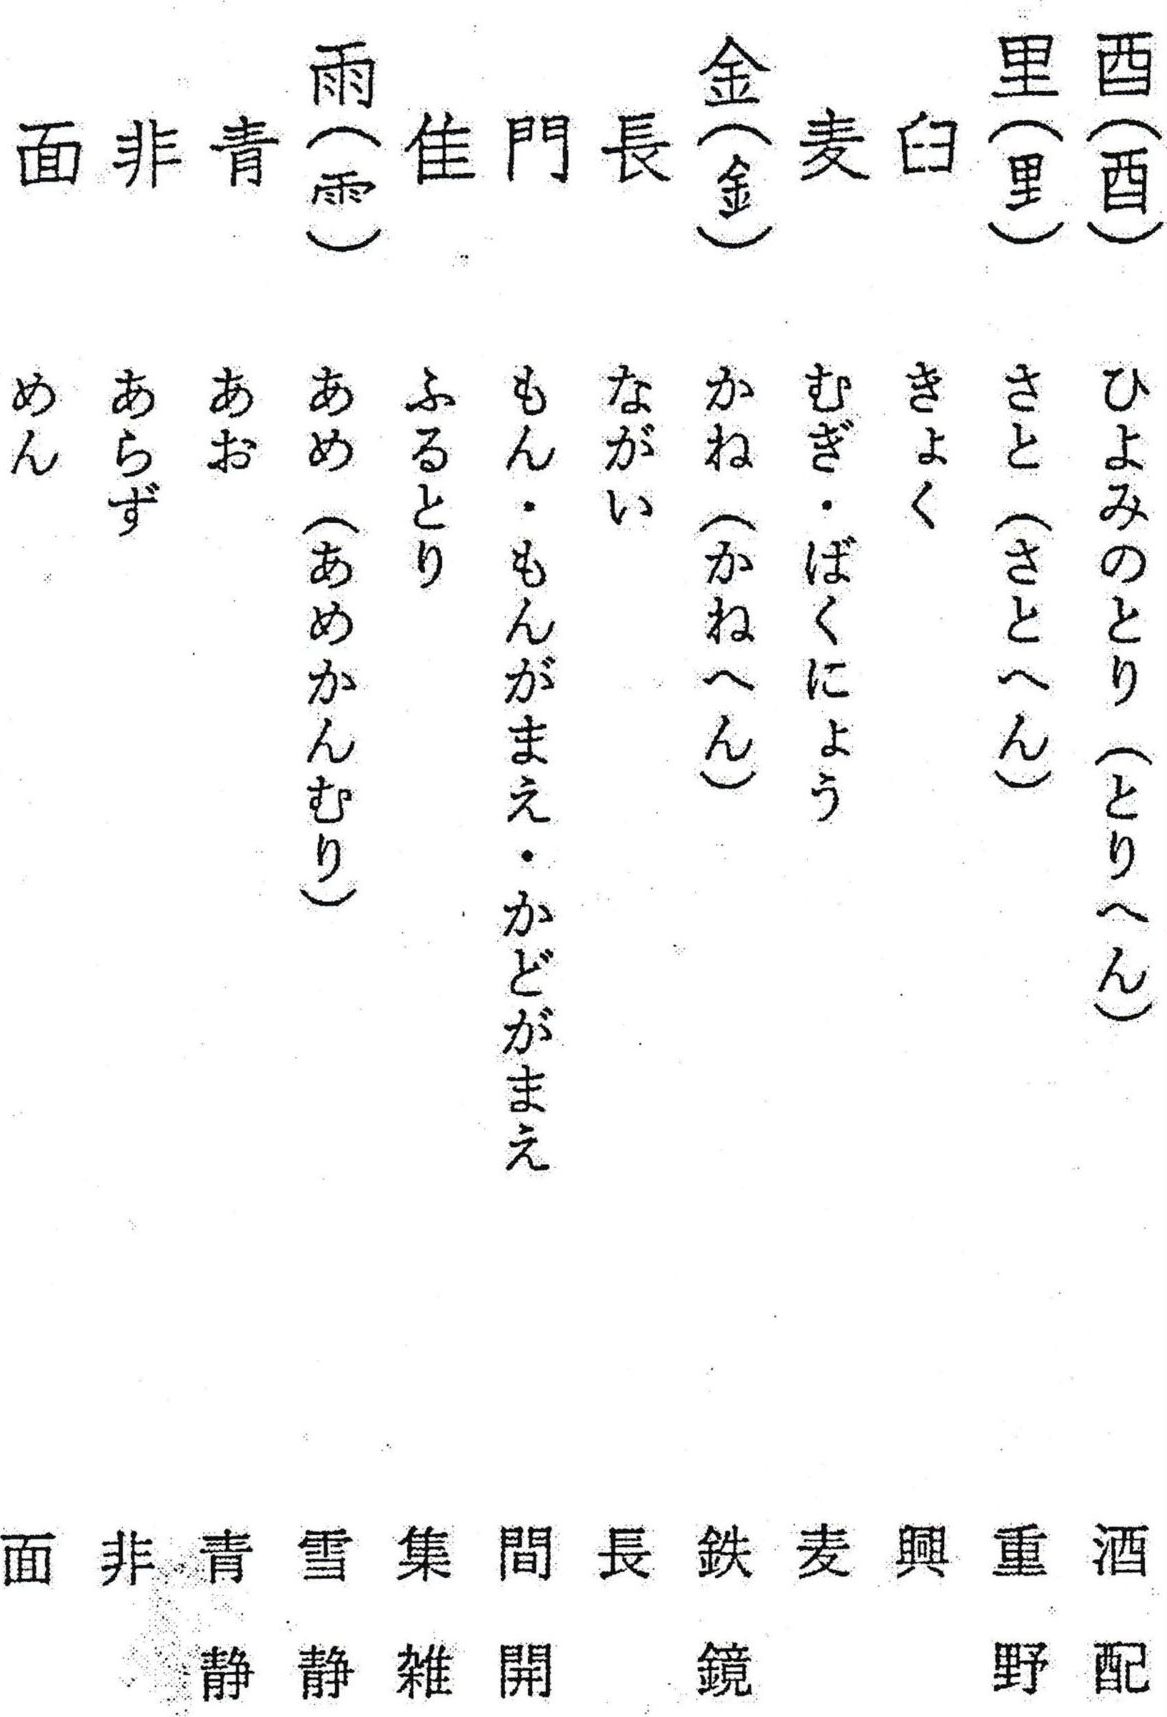 酉(酉) ひよみのとり(とりへん) 酒 配
里(里) さと(さとへん) 重 野
臼 きょく 興
麦 むぎ・ばくにょう 麦
金(金) かね(かねへん) 鉄 鏡
長 ながい 長
門 もん・もんがまえ・かどがまえ 間 開
隹 ふるとり 集 雑
雨(⻗) あめ(あめかんむり) 雪 静
青 あお 青 静
非 あらず 非
面 めん 面